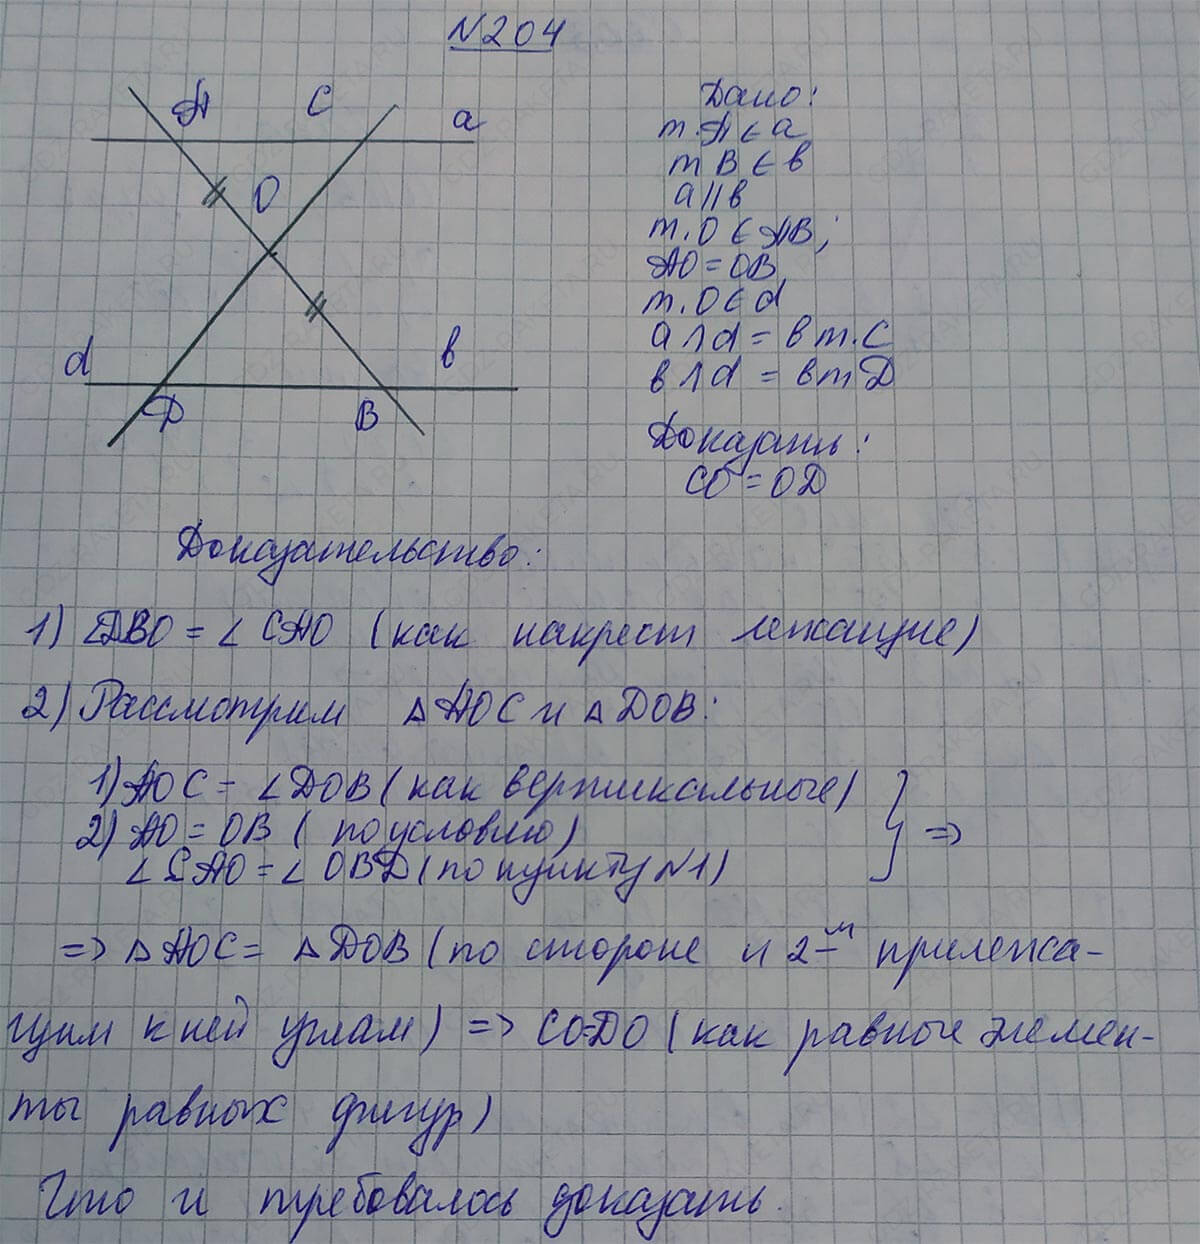 N204
A C a
O
d b
D B
Дано:
т.A ∈ a
т B ∈ b
a || b
т.O ∈ AB;
AO = OB
т.O ∈ d
a ∩ d = в т.C
b ∩ d = в т D
Доказать:
CO = OD
Доказательство:
1) ∠DBO = ∠ CAO (как накрест лежащие)
2) Рассмотрим △ AOC и △ DOB:
1) AOC = ∠DOB (как вертикальные)
2) AO = OB ( по условию)
∠ CAO = ∠ OBD (по пункту N1)
} =>
=> △ AOC = △ DOB (по стороне и 2-м прилежа-
щим к ней углам) => CO=DO (как равные элемен-
ты равных фигур)
Что и требовалось доказать.